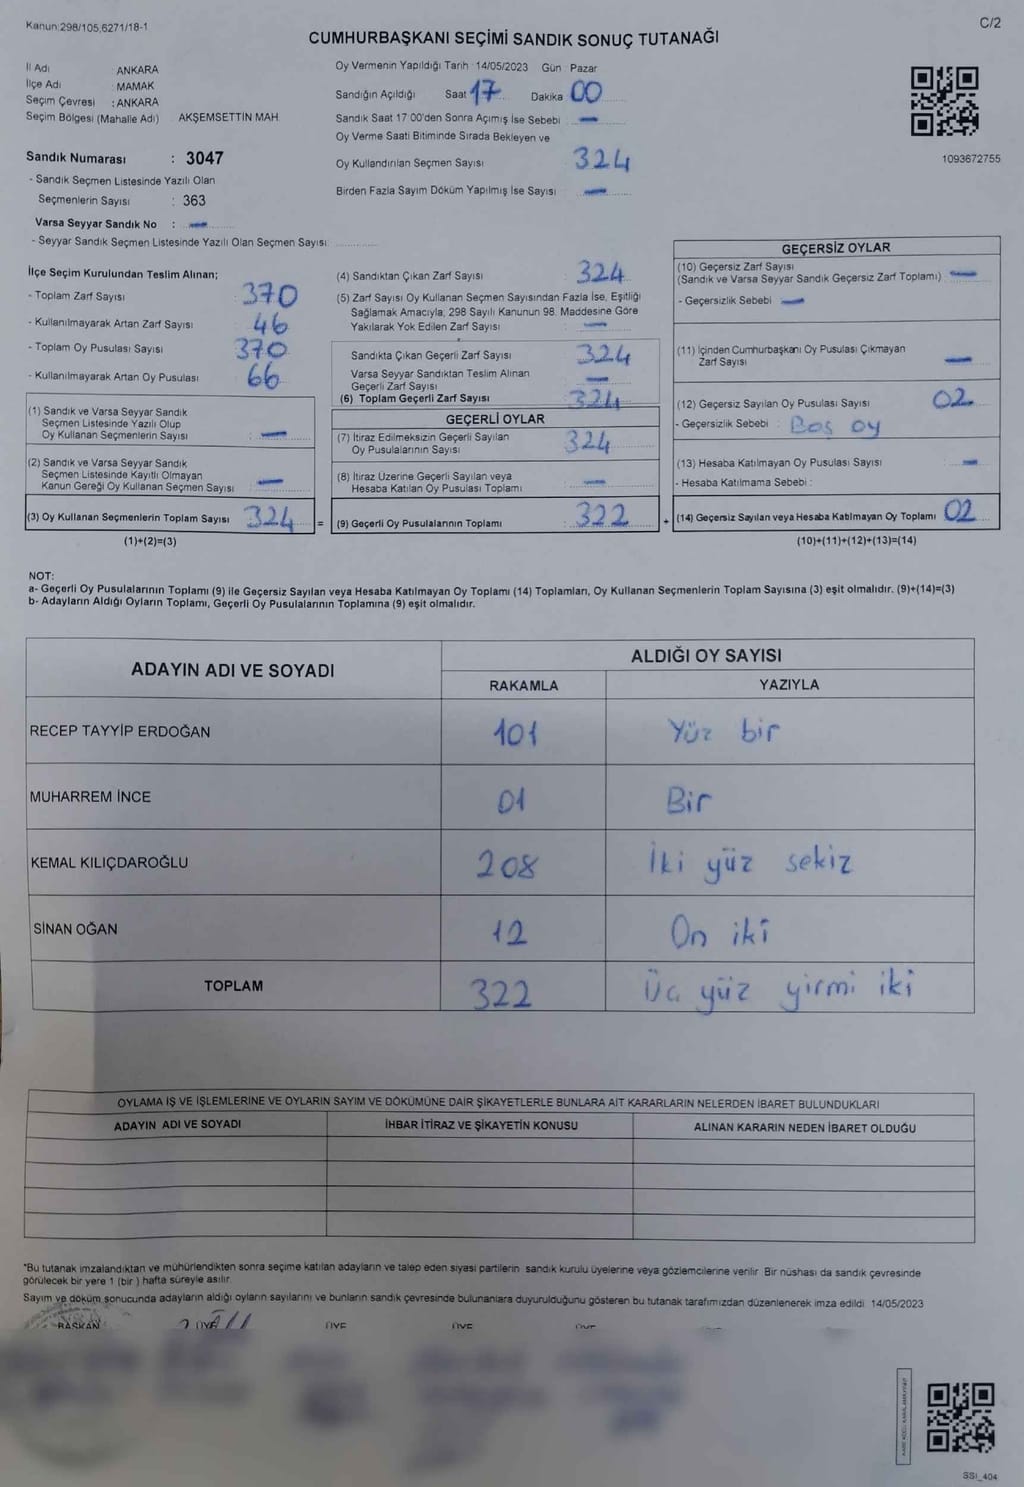 Kanun:298/105,6271/18-1
C/2
CUMHURBAŞKANI SEÇİMİ SANDIK SONUÇ TUTANAĞI
İl Adı ANKARA
İlçe Adı : MAMAK
Seçim Çevresi : ANKARA
Seçim Bölgesi (Mahalle Adı) AKŞEMSETTİN MAH.
Sandık Numarası : 3047
- Sandık Seçmen Listesinde Yazılı Olan
Seçmenlerin Sayısı : 363
Varsa Seyyar Sandık No : —
- Seyyar Sandık Seçmen Listesinde Yazılı Olan Seçmen Sayısı:
Oy Vermenin Yapıldığı Tarih : 14/05/2023 Gün : Pazar
Sandığın Açıldığı Saat 17 Dakika 00
Sandık Saat 17:00'den Sonra Açımış İse Sebebi : —
Oy Verme Saati Bitiminde Sırada Bekleyen ve
Oy Kullandırılan Seçmen Sayısı : 324
Birden Fazla Sayım Döküm Yapılmış İse Sayısı : —
1093672755
İlçe Seçim Kurulundan Teslim Alınan;
- Toplam Zarf Sayısı : 370
- Kullanılmayarak Artan Zarf Sayısı : 46
- Toplam Oy Pusulası Sayısı : 370
- Kullanılmayarak Artan Oy Pusulası : 66
(1) Sandık ve Varsa Seyyar Sandık
Seçmen Listesinde Yazılı Olup
Oy Kullanan Seçmenlerin Sayısı : —
(2) Sandık ve Varsa Seyyar Sandık
Seçmen Listesinde Kayıtlı Olmayan
Kanun Gereği Oy Kullanan Seçmen Sayısı : —
(3) Oy Kullanan Seçmenlerin Toplam Sayısı : 324 =
(1)+(2)=(3)
(4) Sandıktan Çıkan Zarf Sayısı : 324
(5) Zarf Sayısı Oy Kullanan Seçmen Sayısından Fazla İse, Eşitliği
Sağlamak Amacıyla; 298 Sayılı Kanunun 98. Maddesine Göre
Yakılarak Yok Edilen Zarf Sayısı : —
Sandıkta Çıkan Geçerli Zarf Sayısı : 324
Varsa Seyyar Sandıktan Teslim Alınan
Geçerli Zarf Sayısı : —
(6) Toplam Geçerli Zarf Sayısı : 324
GEÇERLİ OYLAR
(7) İtiraz Edilmeksizin Geçerli Sayılan
Oy Pusulalarının Sayısı : 324
(8) İtiraz Üzerine Geçerli Sayılan veya
Hesaba Katılan Oy Pusulası Toplamı : —
(9) Geçerli Oy Pusulalarının Toplamı : 322 +
GEÇERSİZ OYLAR
(10) Geçersiz Zarf Sayısı
(Sandık ve Varsa Seyyar Sandık Geçersiz Zarf Toplamı) : —
- Geçersizlik Sebebi : —
(11) İçinden Cumhurbaşkanı Oy Pusulası Çıkmayan
Zarf Sayısı : —
(12) Geçersiz Sayılan Oy Pusulası Sayısı : 02
- Geçersizlik Sebebi : Boş oy
(13) Hesaba Katılmayan Oy Pusulası Sayısı : —
- Hesaba Katılmama Sebebi :
(14) Geçersiz Sayılan veya Hesaba Katılmayan Oy Toplamı : 02
(10)+(11)+(12)+(13)=(14)
NOT:
a- Geçerli Oy Pusulalarının Toplamı (9) ile Geçersiz Sayılan veya Hesaba Katılmayan Oy Toplamı (14) Toplamları, Oy Kullanan Seçmenlerin Toplam Sayısına (3) eşit olmalıdır. (9)+(14)=(3)
b- Adayların Aldığı Oyların Toplamı, Geçerli Oy Pusulalarının Toplamına (9) eşit olmalıdır.
ADAYIN ADI VE SOYADI ALDIĞI OY SAYISI
RAKAMLA YAZIYLA
RECEP TAYYİP ERDOĞAN 101 Yüz bir
MUHARREM İNCE 01 Bir
KEMAL KILIÇDAROĞLU 208 İki yüz sekiz
SİNAN OĞAN 12 On iki
TOPLAM 322 Üç yüz yirmi iki
OYLAMA İŞ VE İŞLEMLERİNE VE OYLARIN SAYIM VE DÖKÜMÜNE DAİR ŞİKAYETLERLE BUNLARA AİT KARARLARIN NELERDEN İBARET BULUNDUKLARI
ADAYIN ADI VE SOYADI İHBAR İTİRAZ VE ŞİKAYETİN KONUSU ALINAN KARARIN NEDEN İBARET OLDUĞU
*Bu tutanak imzalandıktan ve mühürlendikten sonra seçime katılan adayların ve talep eden siyasi partilerin sandık kurulu üyelerine veya gözlemcilerine verilir. Bir nüshası da sandık çevresinde
görülecek bir yere 1 (bir) hafta süreyle asılır.
Sayım ve döküm sonucunda adayların aldığı oyların sayılarını ve bunların sandık çevresinde bulunanlara duyurulduğunu gösteren bu tutanak tarafımızdan düzenlenerek imza edildi. 14/05/2023
BAŞKAN ÜYE ÜYE ÜYE ÜYE
SSI_404